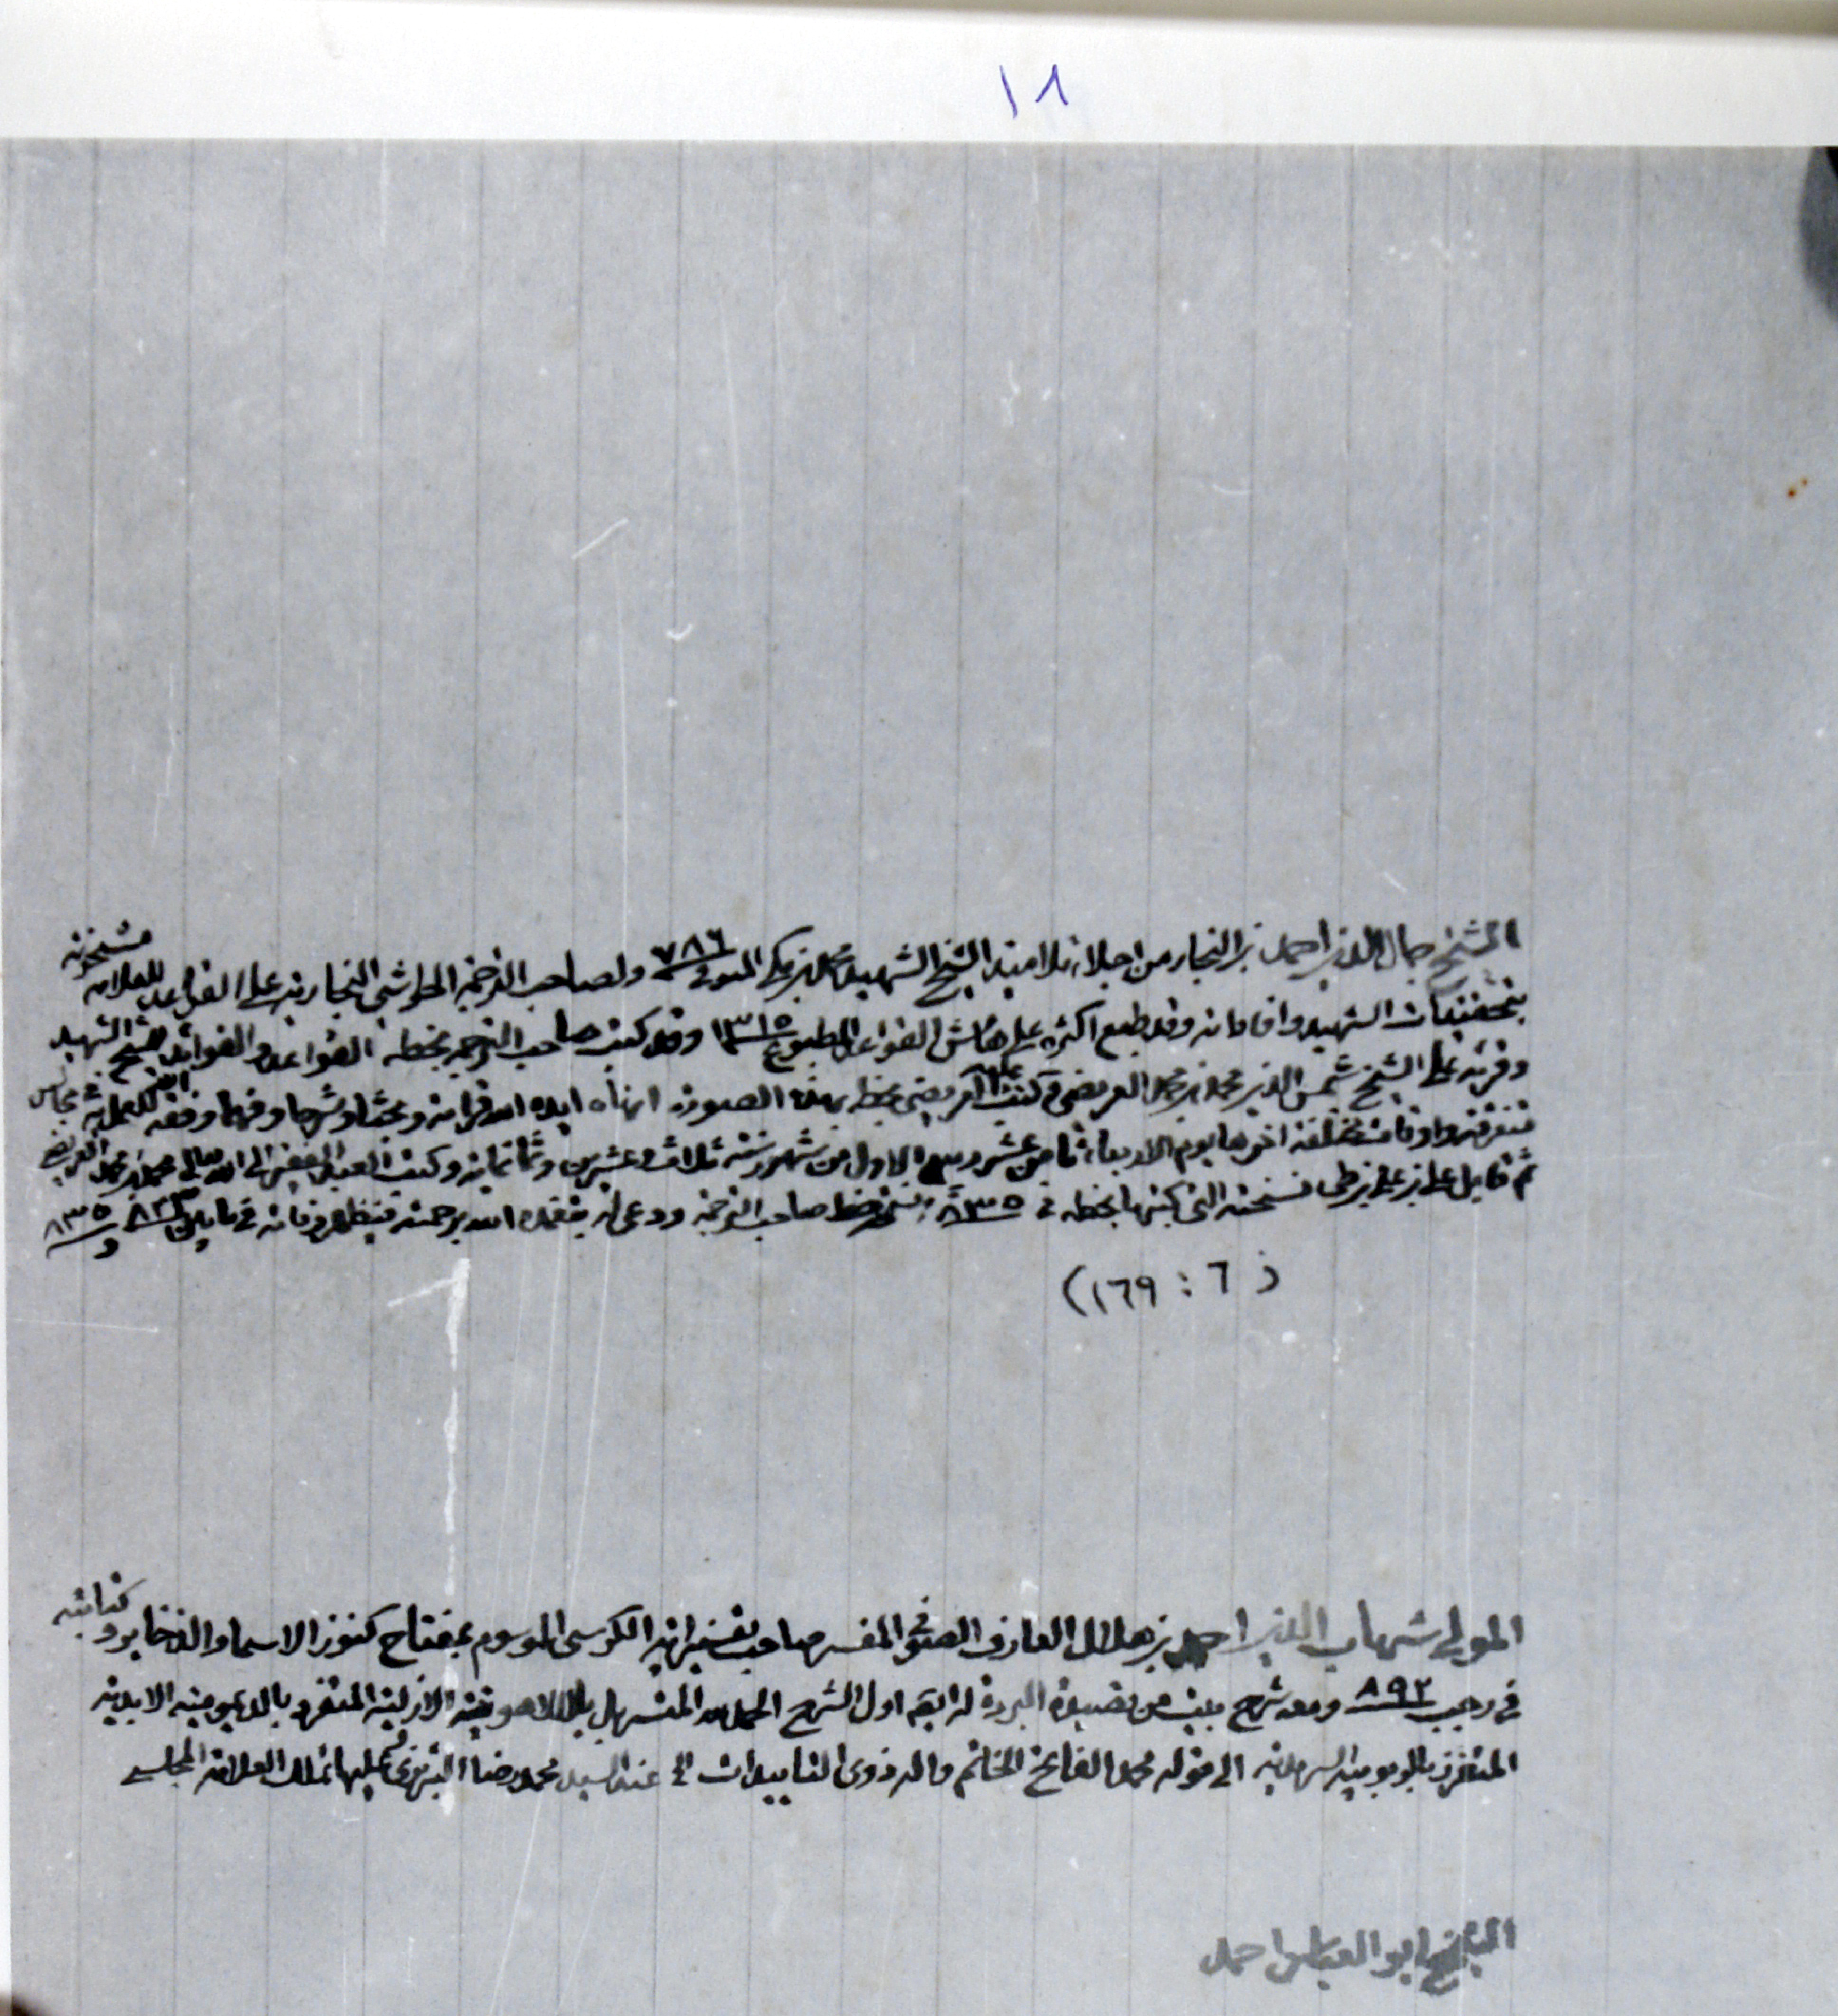 ١٨
الشيخ جمال الدين احمد بن النجار من اجلاء تلاميذ الشيخ الشهيد محمد بن مكي المتوفى ٧٨٦ ولصاحب الترجمة الحواشي النجارية على القواعد للعلامة مشحونة
بتحقيقات الشهيد وافاداته وقد طبع اكثره على هامش القواعد المطبوع ١٣١٥ وقد كتب صاحب الترجمة بخطه القواعد والفوائد للشيخ الشهيد
وقرئه على الشيخ شمس الدين محمد بن محمد العريضي وكتب العريضي بخطه بهذه الصورة انهاه ايده الله قراءة وبحثا وشرحا وفهما وفقه الله للعمل به في مجالس
متفرقة واوقات مختلفة اخرها يوم الاربعاء ثامن عشر ربيع الاول من شهور سنة ثلاث وعشرين وثمانمائة وكتب العبد الفقير الى الله تعالى محمد بن محمد العريضي
ثم قابل علي بن علي بن طي نسخته التي كتبها بخطه في ٨٣٥ بنسخة خط صاحب الترجمة ودعى له بتغمده الله برحمته فيظهر وفاته في ما بين ٨٢٣ و ٨٣٥
(٦ : ١٦٩)
المولى شهاب الدين احمد بن هلال العارف الصوفي المفسر صاحب تفسير اية الكرسي الموسوم بمفتاح كنوز الاسماء والذخاير وكتابته
في رجب ٨٩٢ ومعه شرح بيت من قصيدة البردة له ايضا اول الشرح الحمد لله المتسربل بلال لاهوتيته الازلية المتفرد بالديمومية الابدية
المتفرد بالربوبية السرمدية الى قوله محمد الفاتح الخاتم واله ذوى التاييدات الخ عند السيد محمد رضا التبريزي عليها تملك العلامة المجلسي
الشيخ ابو العباس احمد